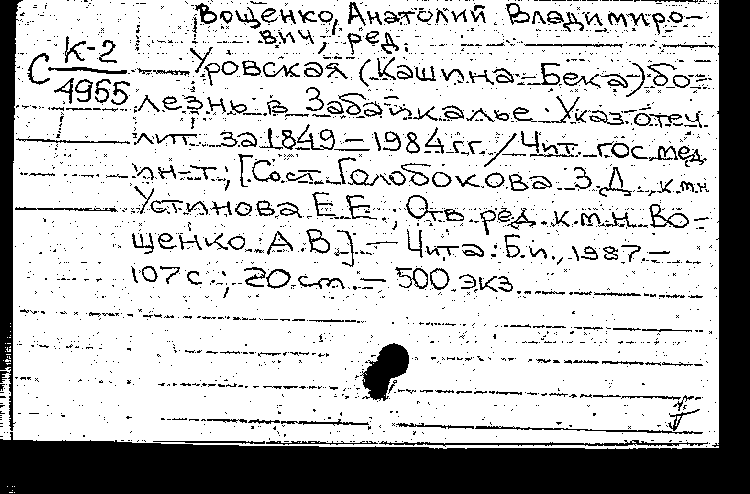 Вощенко, Анатолий Владимиро-
вич, ред.
С К-2
4955
Уровская (Кашина-Бека) бо-
лезнь в Забайкалье. Указ. отеч.
лит. за 1849-1984 г.г. / Чит. гос. мед.
ин-т; [Сост. Голобокова З.Д., к.м.н.
Устинова Е.Е.; Отв. ред. к.м.н. Во-
щенко А.В.]. - Чита: Б.и., 1987 -
107 с.; 20 см. - 500 экз.